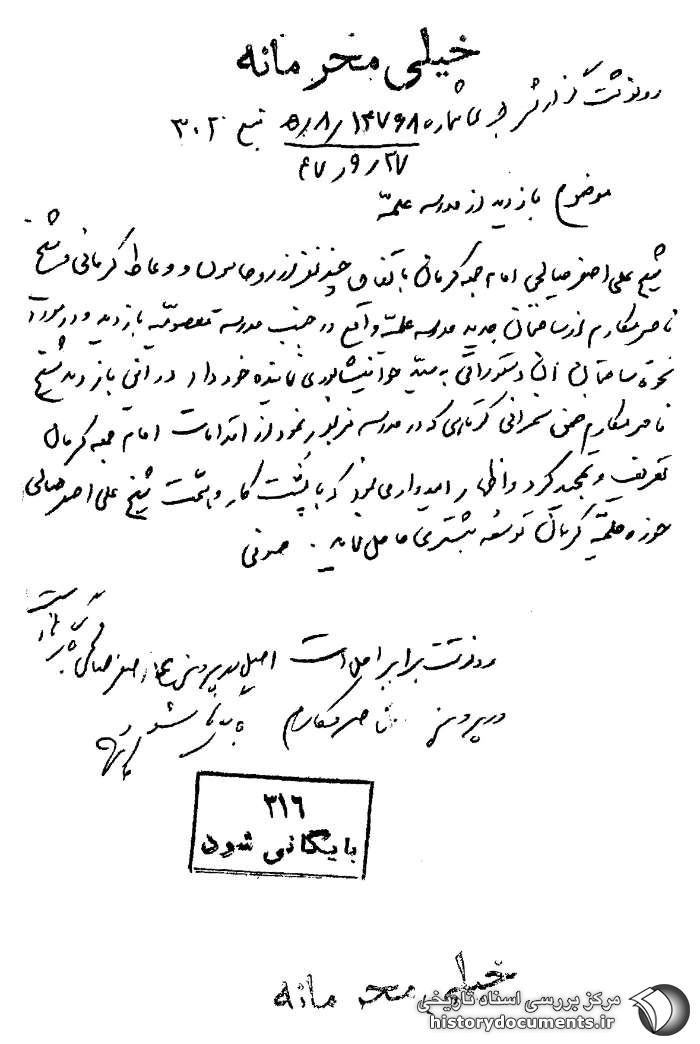 خیلی محرمانه
رونوشت گزارش خبری شماره ۵/۸/۱۴۷۶۸ تبع ۳۰۲
۴۷/۹/۲۷
موضوع بازدید از مدرسه علمیّه
شیخ علی اصغر صالحی امام جمعه کرمان باتفاق چند نفر از روحانیون و وعاظ کرمانی و شیخ
ناصر مکارم از ساختمان جدید مدرسه علمیّه واقع در جنب مدرسه معصومیّه بازدید و در مورد
نحوه ساختمان آن دستوراتی به سید جواد نیشابوری نماینده خود داد در اثنی بازدید شیخ
ناصر مکارم ضمن سخنرانی کوتاهی که در مدرسه مزبور نمود از اقدامات امام جمعه کرمان
تعریف و تمجید کرد و اظهار امیدواری نمود که با پشت کار و همّت شیخ علی اصغر صالحی
حوزه علمیّه کرمان توسعه بیشتری حاصل نماید . صدفی
رونوشت برابر اصل است اصل در پرونده علی اصغر صالحی
در پرونده ناصر مکارم بایگانی شود
۳۱۶
بایگانی شود
خیلی محرمانه
مرکز بررسی اسناد تاریخی
historydocuments.ir